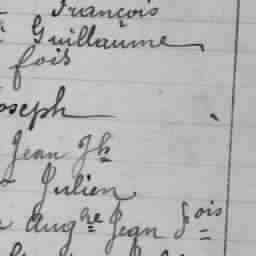 François
Guillaume
fois
Joseph
Jean Jh
Julien
Augne Jean fois